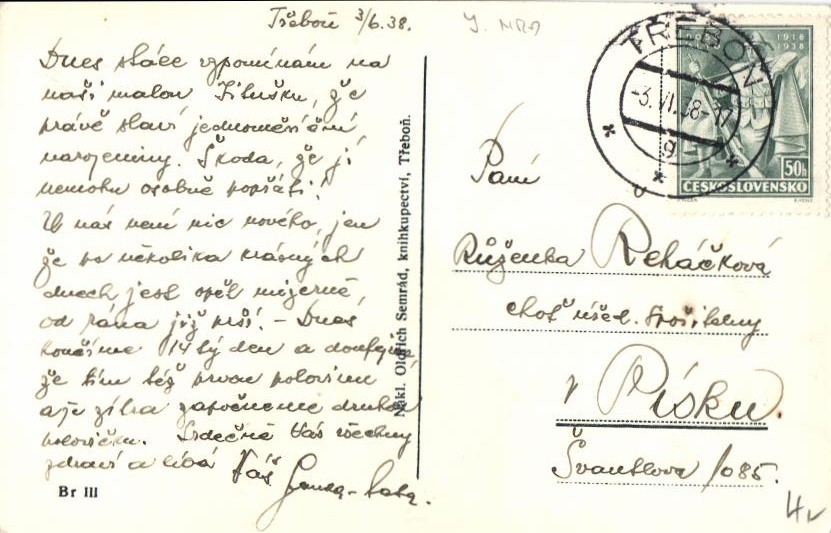 Třeboň 3/6.38.
Dnes stále vzpomínám na
naši malou Jitušku, že
právě slaví jednoměsíční
narozeniny. Škoda, že jí
nemohu osobně popřáti!
U nás není nic nového, jen
že po několika krásných
dnech jest opět mizerně,
od rána již prší. – Dnes
končíme 14tý den a doufejme,
že tím též prvou polovinu
a že zítra započneme druhou
polovičku. Srdečně Vás všechny
zdraví a líbá Váš
Br III
Nákl. Oldřich Semrád, knihkupectví, Třeboň.
TŘEBOŇ
-3.VI.38-17
g
1918
1938
50h
ČESKOSLOVENSKO
Paní
Růženka Řeháčková
choť úřed. spořitelny
v Písku.
Švantlova 1085.